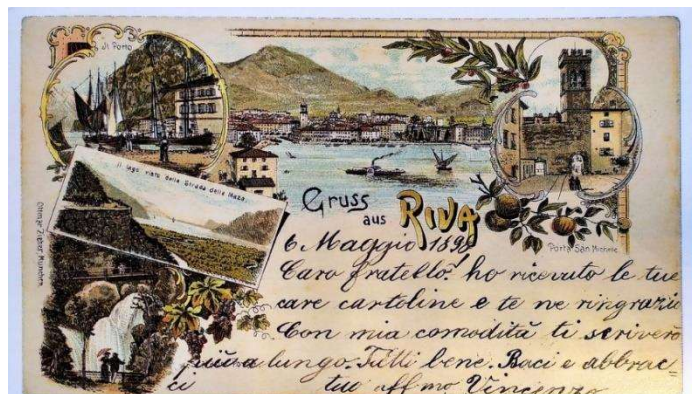 il Porto
Il lago visto dalla Strada della Naza
Ottmar Zieher, München
Gruss
aus RIVA
Porta San Michele
6 Maggio 189
Caro fratello! ho ricevuto le tue
care cartoline e te ne ringrazio
Con mia comodità ti scriverò
più a lungo. Tutti bene. Baci e abbrac-
ci tuo affmo Vincenzo